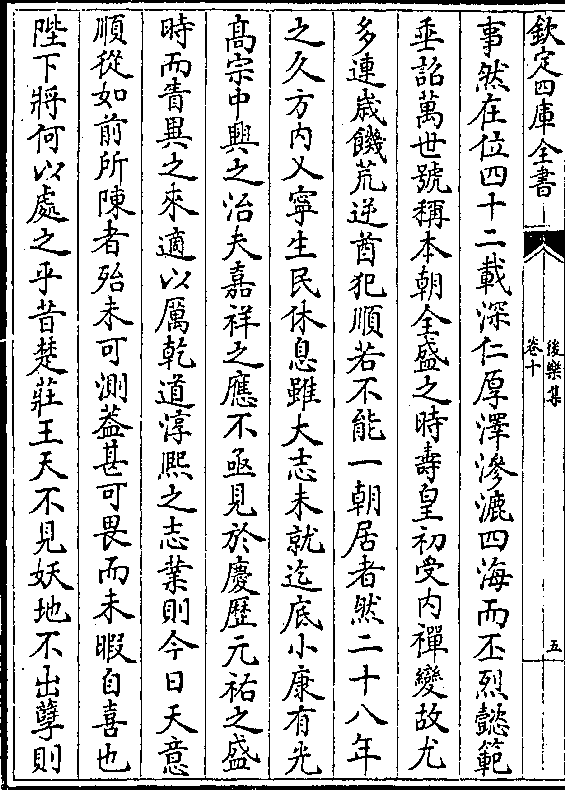 欽定四庫全書
後樂集
卷十
五
事然在位四十二載深仁厚澤滲漉四海而丕烈懿範
垂詔萬世號稱本朝全盛之時壽皇初受内禪變故尤
多連歲饑荒逆酋犯順若不能一朝居者然二十八年
之久方内乂寧生民休息雖大志未就迄底小康有光
髙宗中興之治夫嘉祥之應不亟見於慶歷元祐之盛
時而眚異之來適以厲乾道淳熙之志業則今日天意
順從如前所陳者殆未可測葢甚可畏而未暇自喜也
陛下將何以處之乎昔楚莊王天不見妖地不出孽則